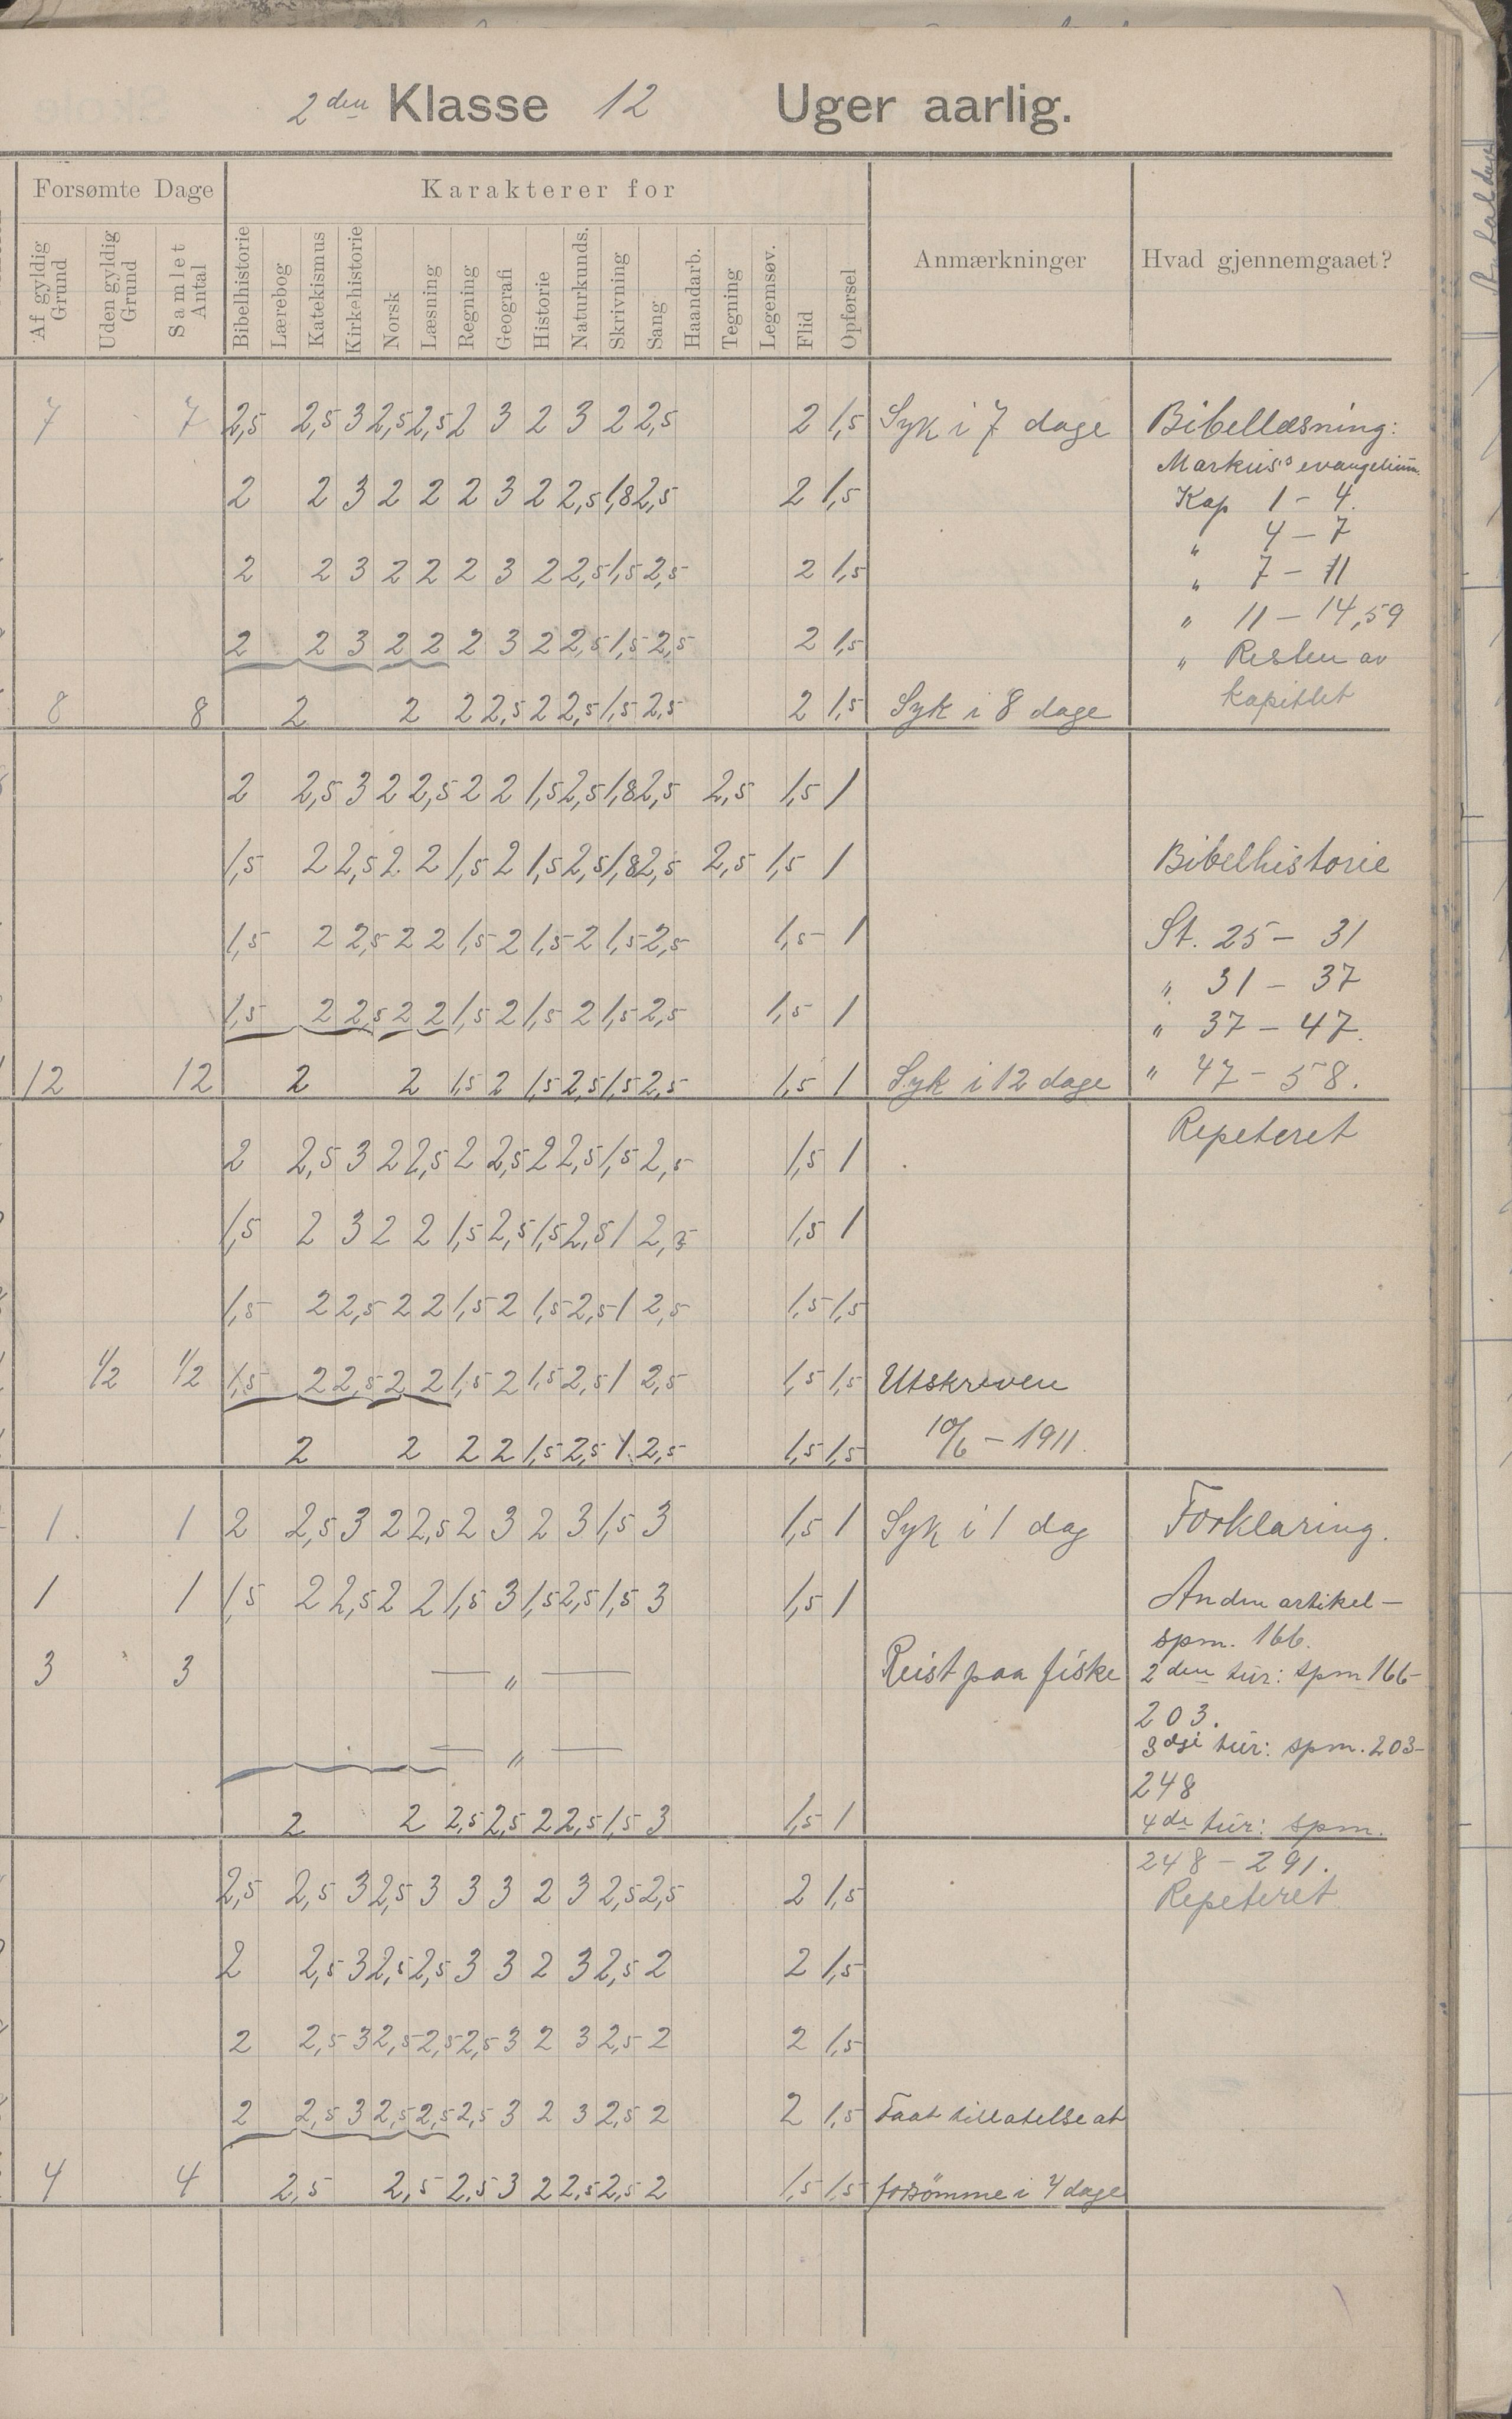 2den Klasse 12 Uger aarlig.
Forsømte Dage Karakterer for Anmærkninger Hvad gjennemgaaet?
Af gyldig Grund Uden gyldig Grund Samlet Antal Bibelhistorie Lærebog Katekismus Kirkehistorie Norsk Læsning Regning Geografi Historie Naturkunds. Skrivning Sang Haandarb. Tegning Legemsøv. Flid Opførsel
7 7 2,5 2,5 3 2,5 2,5 2 3 2 3 2 2,5 2 1,5 Syk i 7 dage Bibellæsning:
Markus's evangelium.
2 2 3 2 2 2 3 2 2,5 1,8 2,5 2 1,5 Kap 1 - 4.
" 4 - 7
2 2 3 2 2 2 3 2 2,5 1,5 2,5 2 1,5 " 7 - 11
" 11 - 14,59
2 2 3 2 2 2 3 2 2,5 1,5 2,5 2 1,5 " Resten av
8 8 2 2 2 2,5 2 2,5 1,5 2,5 2 1,5 Syk i 8 dage kapitlet
2 2,5 3 2 2,5 2 2 1,5 2,5 1,8 2,5 2,5 1,5 1
1,5 2 2,5 2 2 1,5 2 1,5 2,5 1,8 2,5 2,5 1,5 1 Bibelhistorie
1,5 2 2,5 2 2 1,5 2 1,5 2 1,5 2,5 1,5 1 St. 25 - 31
" 31 - 37
1,5 2 2,5 2 2 1,5 2 1,5 2 1,5 2,5 1,5 1 " 37 - 47.
12 12 2 2 1,5 2 1,5 2,5 1,5 2,5 1,5 1 Syk i 12 dage " 47 - 58.
Repeteret
2 2,5 3 2 2,5 2 2,5 2 2,5 1,5 2,5 1,5 1
1,5 2 3 2 2 1,5 2,5 1,5 2,5 1 2,5 1,5 1
1,5 2 2,5 2 2 1,5 2 1,5 2,5 1 2,5 1,5 1,5
1/2 1/2 1,5 2 2,5 2 2 1,5 2 1,5 2,5 1 2,5 1,5 1,5 Utskreven
2 2 2 2 1,5 2,5 1 2,5 1,5 1,5 10/6 - 1911.
1. 1 2 2,5 3 2 2,5 2 3 2 3 1,5 3 1,5 1 Syk i 1 dag Forklaring.
1 1 1,5 2 2,5 2 2 1,5 3 1,5 2,5 1,5 3 1,5 1 Anden artikel -
spm. 166.
3 3 — " — Reist paa fiske 2den tur: spm 166-
203.
— " — 3dje tur: spm. 203-
248
2 2 2,5 2,5 2 2,5 1,5 3 1,5 1 4de tur: spm.
248 - 291.
2,5 2,5 3 2,5 3 3 3 2 3 2,5 2,5 2 1,5 Repeteret
2 2,5 3 2,5 2,5 3 3 2 3 2,5 2 2 1,5
2 2,5 3 2,5 2,5 2,5 3 2 3 2,5 2 2 1,5
2 2,5 3 2,5 2,5 2,5 3 2 3 2,5 2 2 1,5 Faat tillatelse at
4 4 2,5 2,5 2,5 3 2 2,5 2,5 2 1,5 1,5 forsömme i 4 dage